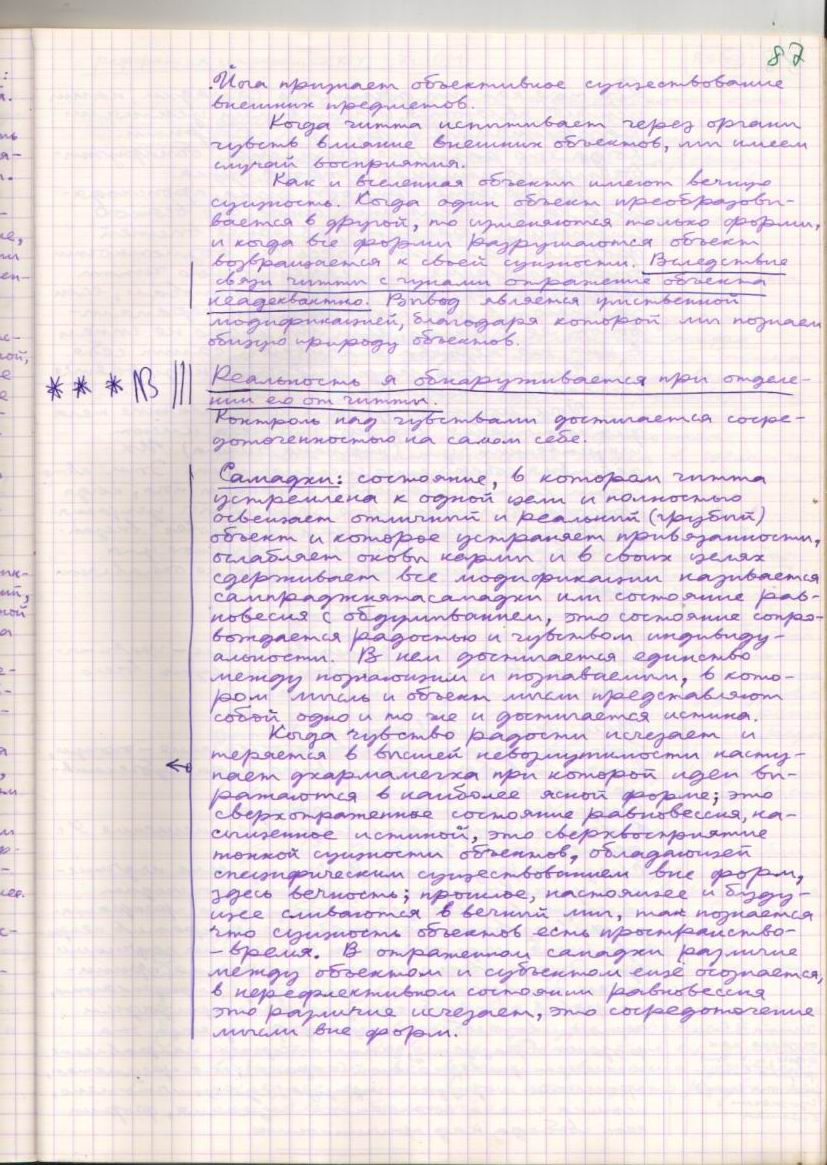 87
Йога признает объективное существование
внешних предметов.
Когда читта испытывает через органы
чувств влияние внешних объектов, мы имеем
случай восприятия.
Как и вселенная объекты имеют вечную
сущность. Когда один объект преобразовы-
вается в другой, то изменяются только формы,
и когда все формы разрушаются объект
возвращается к своей сущности. Вследствие
связи читты с гунами отражение объекта
неадекватно. Вывод является умственной
модификацией, благодаря которой мы познаем
общую природу объектов.
*** NB ||| Реальность я обнаруживается при отделе-
нии его от читты.
Контроль над чувствами достигается сосре-
доточенностью на самом себе.
Самадхи: состояние, в котором читта
устремлена к одной цели и полностью
освещает отличный и реальный (грубый)
объект и которое устраняет привязанности,
ослабляет оковы кармы и в своих целях
сдерживает все модификации называется
сампраджнятасамадхи или состояние рав-
новесия с обдумыванием, это состояние сопро-
вождается радостью и чувством индивиду-
альности. В нем достигается единство
между познающим и познаваемым, в кото-
ром мысль и объект мысли представляют
собой одно и то же и достигается истина.
Когда чувство радости исчезает и
теряется в высшей невозмутимости насту-
пает дхармамегха при которой идеи вы-
ражаются в наиболее ясной форме; это
сверхотраженное состояние равновессия, на-
сыщенное истиной, это сверхвосприятие
тонкой сущности объектов, обладающей
специфическим существованием вне форм,
здесь вечность; прошлое, настоящее и буду-
щее сливаются в вечный миг, так познается
что сущность объектов есть пространство-
-время. В отраженном самадхи различие
между объектом и субъектом ещё осознается,
в нерефлективном состоянии равновессия
это различие исчезает, это сосредоточение
мысли вне форм.